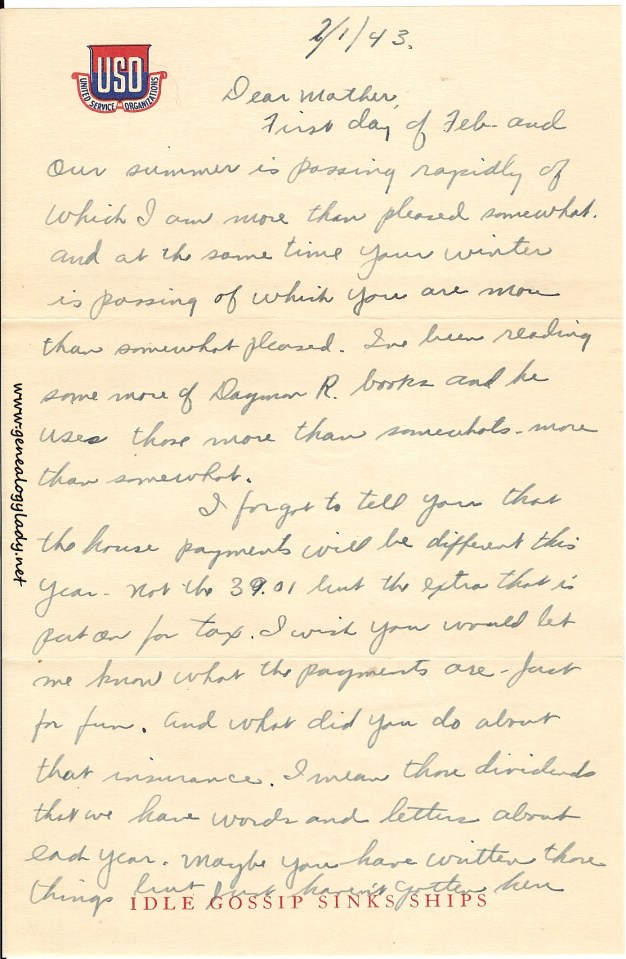 2/1/43.
USO
UNITED SERVICE ORGANIZATIONS
Dear Mother,
First day of Feb and
our summer is passing rapidly of
which I am more than pleased somewhat.
and at the same time your winter
is passing of which you are more
than somewhat pleased. I've been reading
some more of Daymon R. books and he
uses those more than somewhats - more
than somewhat.
I forgot to tell you that
the house payments will be different this
year - not the 39.01 but the extra that is
put on for tax. I wish you would let
me know what the payments are - Just
for fun. And what did you do about
that insurance. I mean those dividends
that we have words and letters about
each year. Maybe you have written those
things but just haven't gotten here
IDLE GOSSIP SINKS SHIPS
www.genealogylady.net